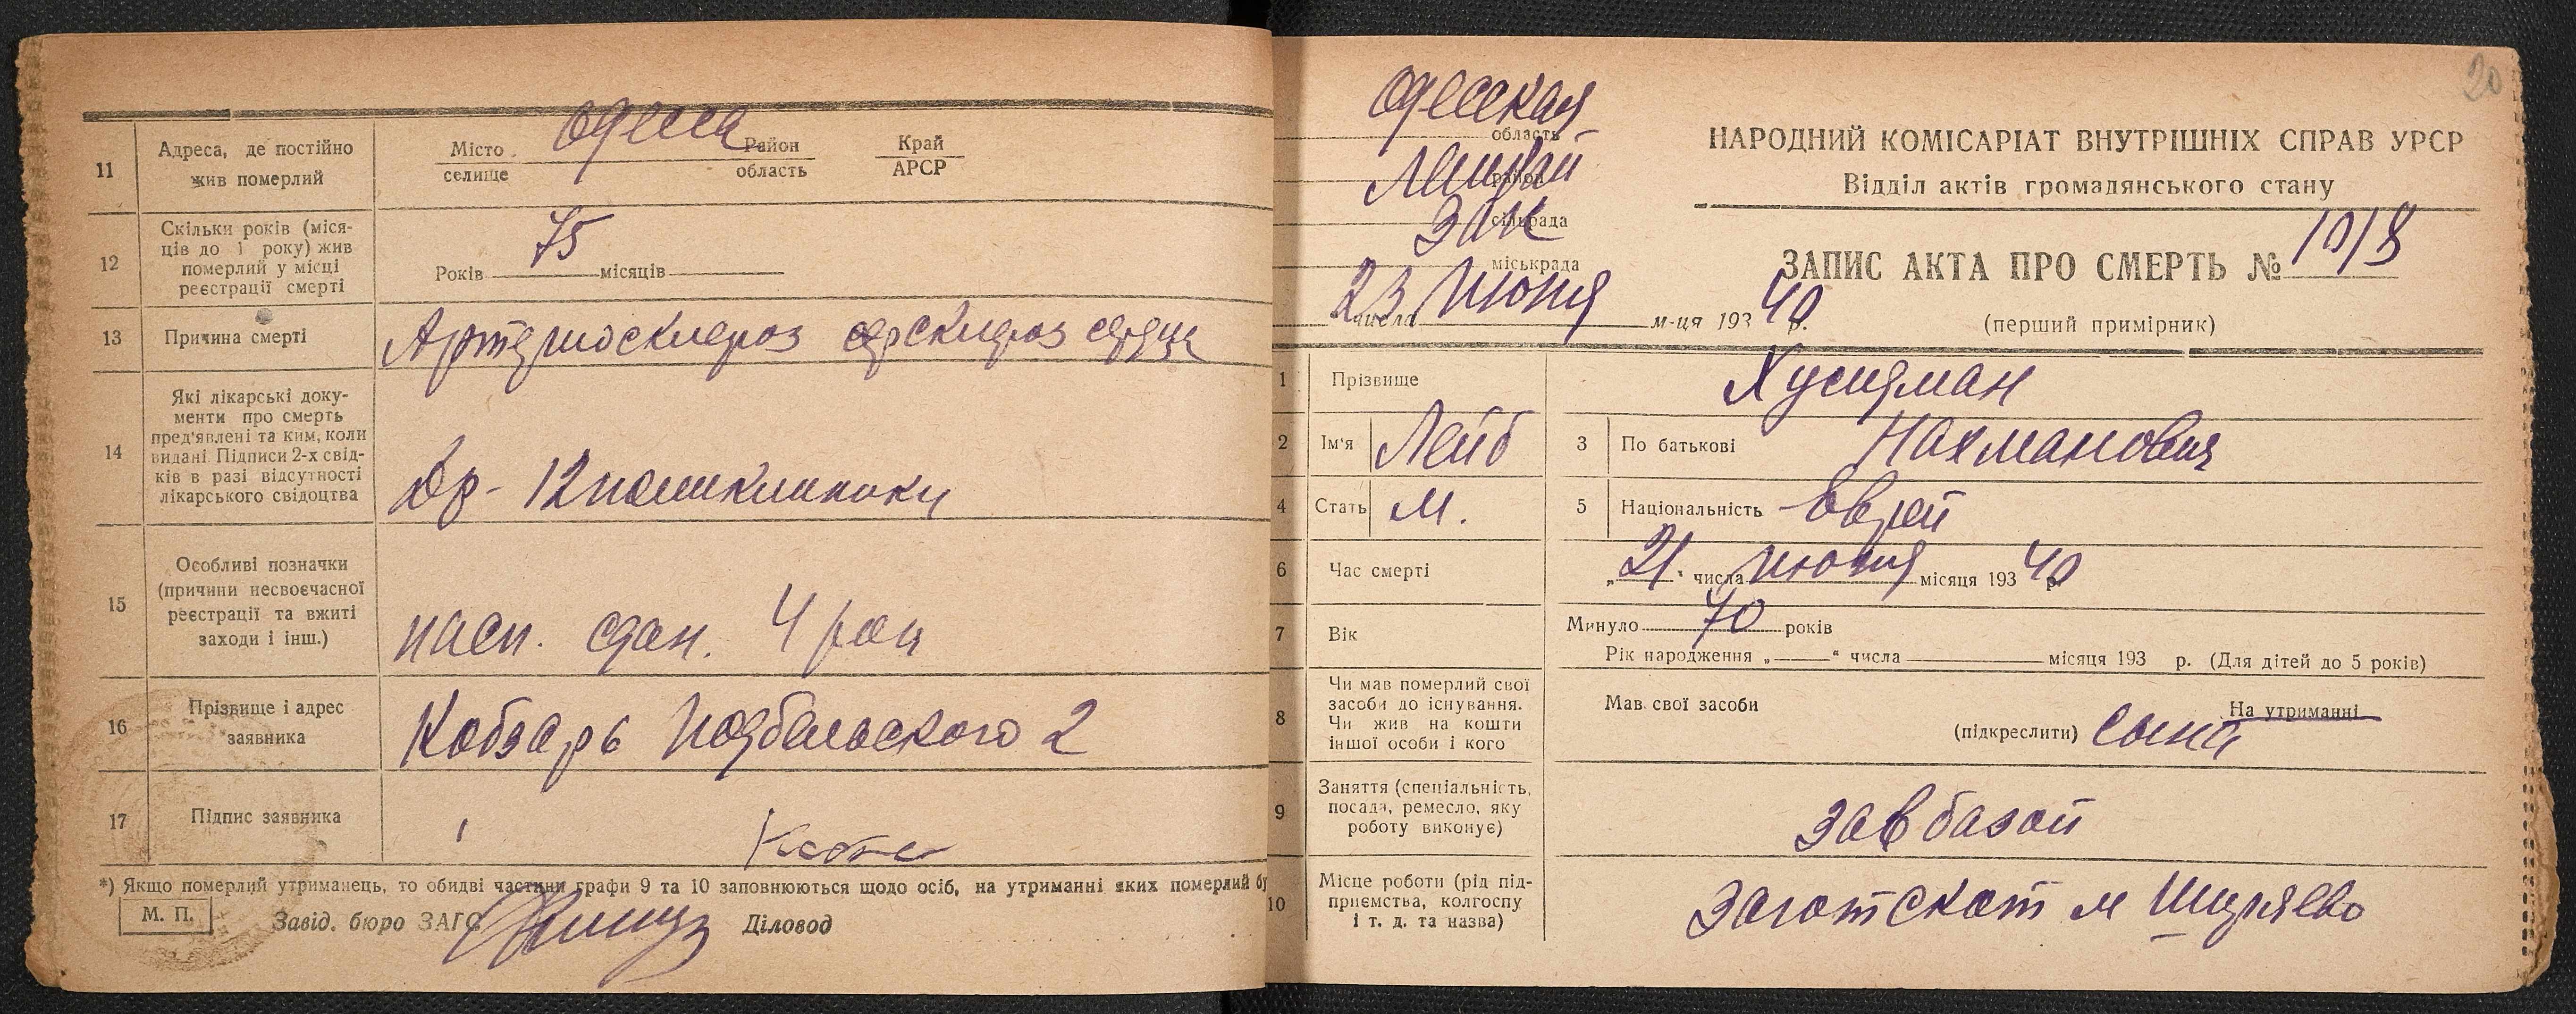 11
Адреса, де постійно
жив померлий
Місто
селище
Одесса
Район
область
Край
АРСР
12
Скільки років (міся-
ців до 1 року) жив
померлий у місці
реєстрації смерті
Років 75 місяців
13
Причина смерті
Артериосклероз сердца
14
Які лікарські доку-
менти про смерть
пред'явлені та ким, коли
видані Підписи 2-х свід-
ків в разі відсутності
лікарського свідоцтва
др- 12 поликлиники
15
Особливі позначки
(причини несвоєчасної
реєстрації та вжиті
заходи і інш.)
пасп. сдан. 4 рай
16
Прізвище і адрес
заявника
Кобзарь Подбельского 2
17
Підпис заявника
*) Якщо померлий утриманець, то обидві частини графи 9 та 10 заповнюються щодо осіб, на утриманні яких померлий бу
М. П.
Завід. бюро ЗАГС
Діловод
20
Одесская
область
район
сільрада
міськрада
23 числа июня м-ця 193 40 р.
НАРОДНИЙ КОМІСАРІАТ ВНУТРІШНІХ СПРАВ УРСР
Відділ актів громадянського стану
ЗАПИС АКТА ПРО СМЕРТЬ № 1018
(перший примірник)
1 Прізвище Хусидман
2 Ім'я Лейб 3 По батькові Нахманович
4 Стать М. 5 Національність Еврей
6 Час смерті „21" числа июня місяця 193 40 р.
7 Вік Минуло 70 років
Рік народження „ " числа місяця 193 р. (Для дітей до 5 років)
8
Чи мав померлий свої
засоби до існування.
Чи жив на кошти
іншої особи і кого
Мав свої засоби
(підкреслити)
На утриманні
сына
9
Заняття (спеціальність,
посада, ремесло, яку
роботу виконує)
зав базой
10
Місце роботи (рід під-
приємства, колгоспу
і т. д. та назва)
Заготскот м Ширяево